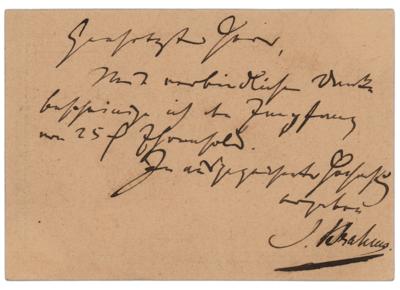 Geehrtester Herr,
Mit verbindlichem Danke
bescheinige ich den Empfang
von 25 f Ehrensold.
In ausgezeichneter Hochachtg
ergeben
J. Brahms.